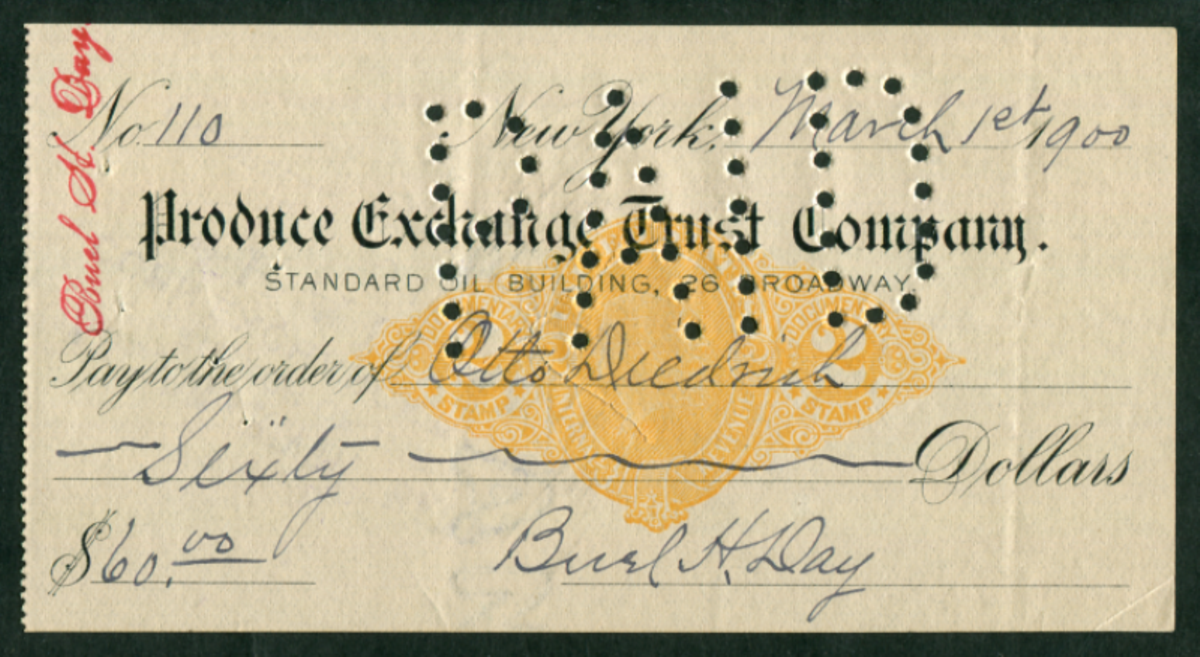 Buel H. Day
No. 110 New York, March 1st 1900
Produce Exchange Trust Company.
STANDARD OIL BUILDING, 26 BROADWAY.
Pay to the order of Otto Diedrich
Sixty Dollars
$60.00 Buel H. Day
PAID
DOCUMENTARY DOCUMENTARY
2 2
STAMP STAMP
INTERNAL REVENUE